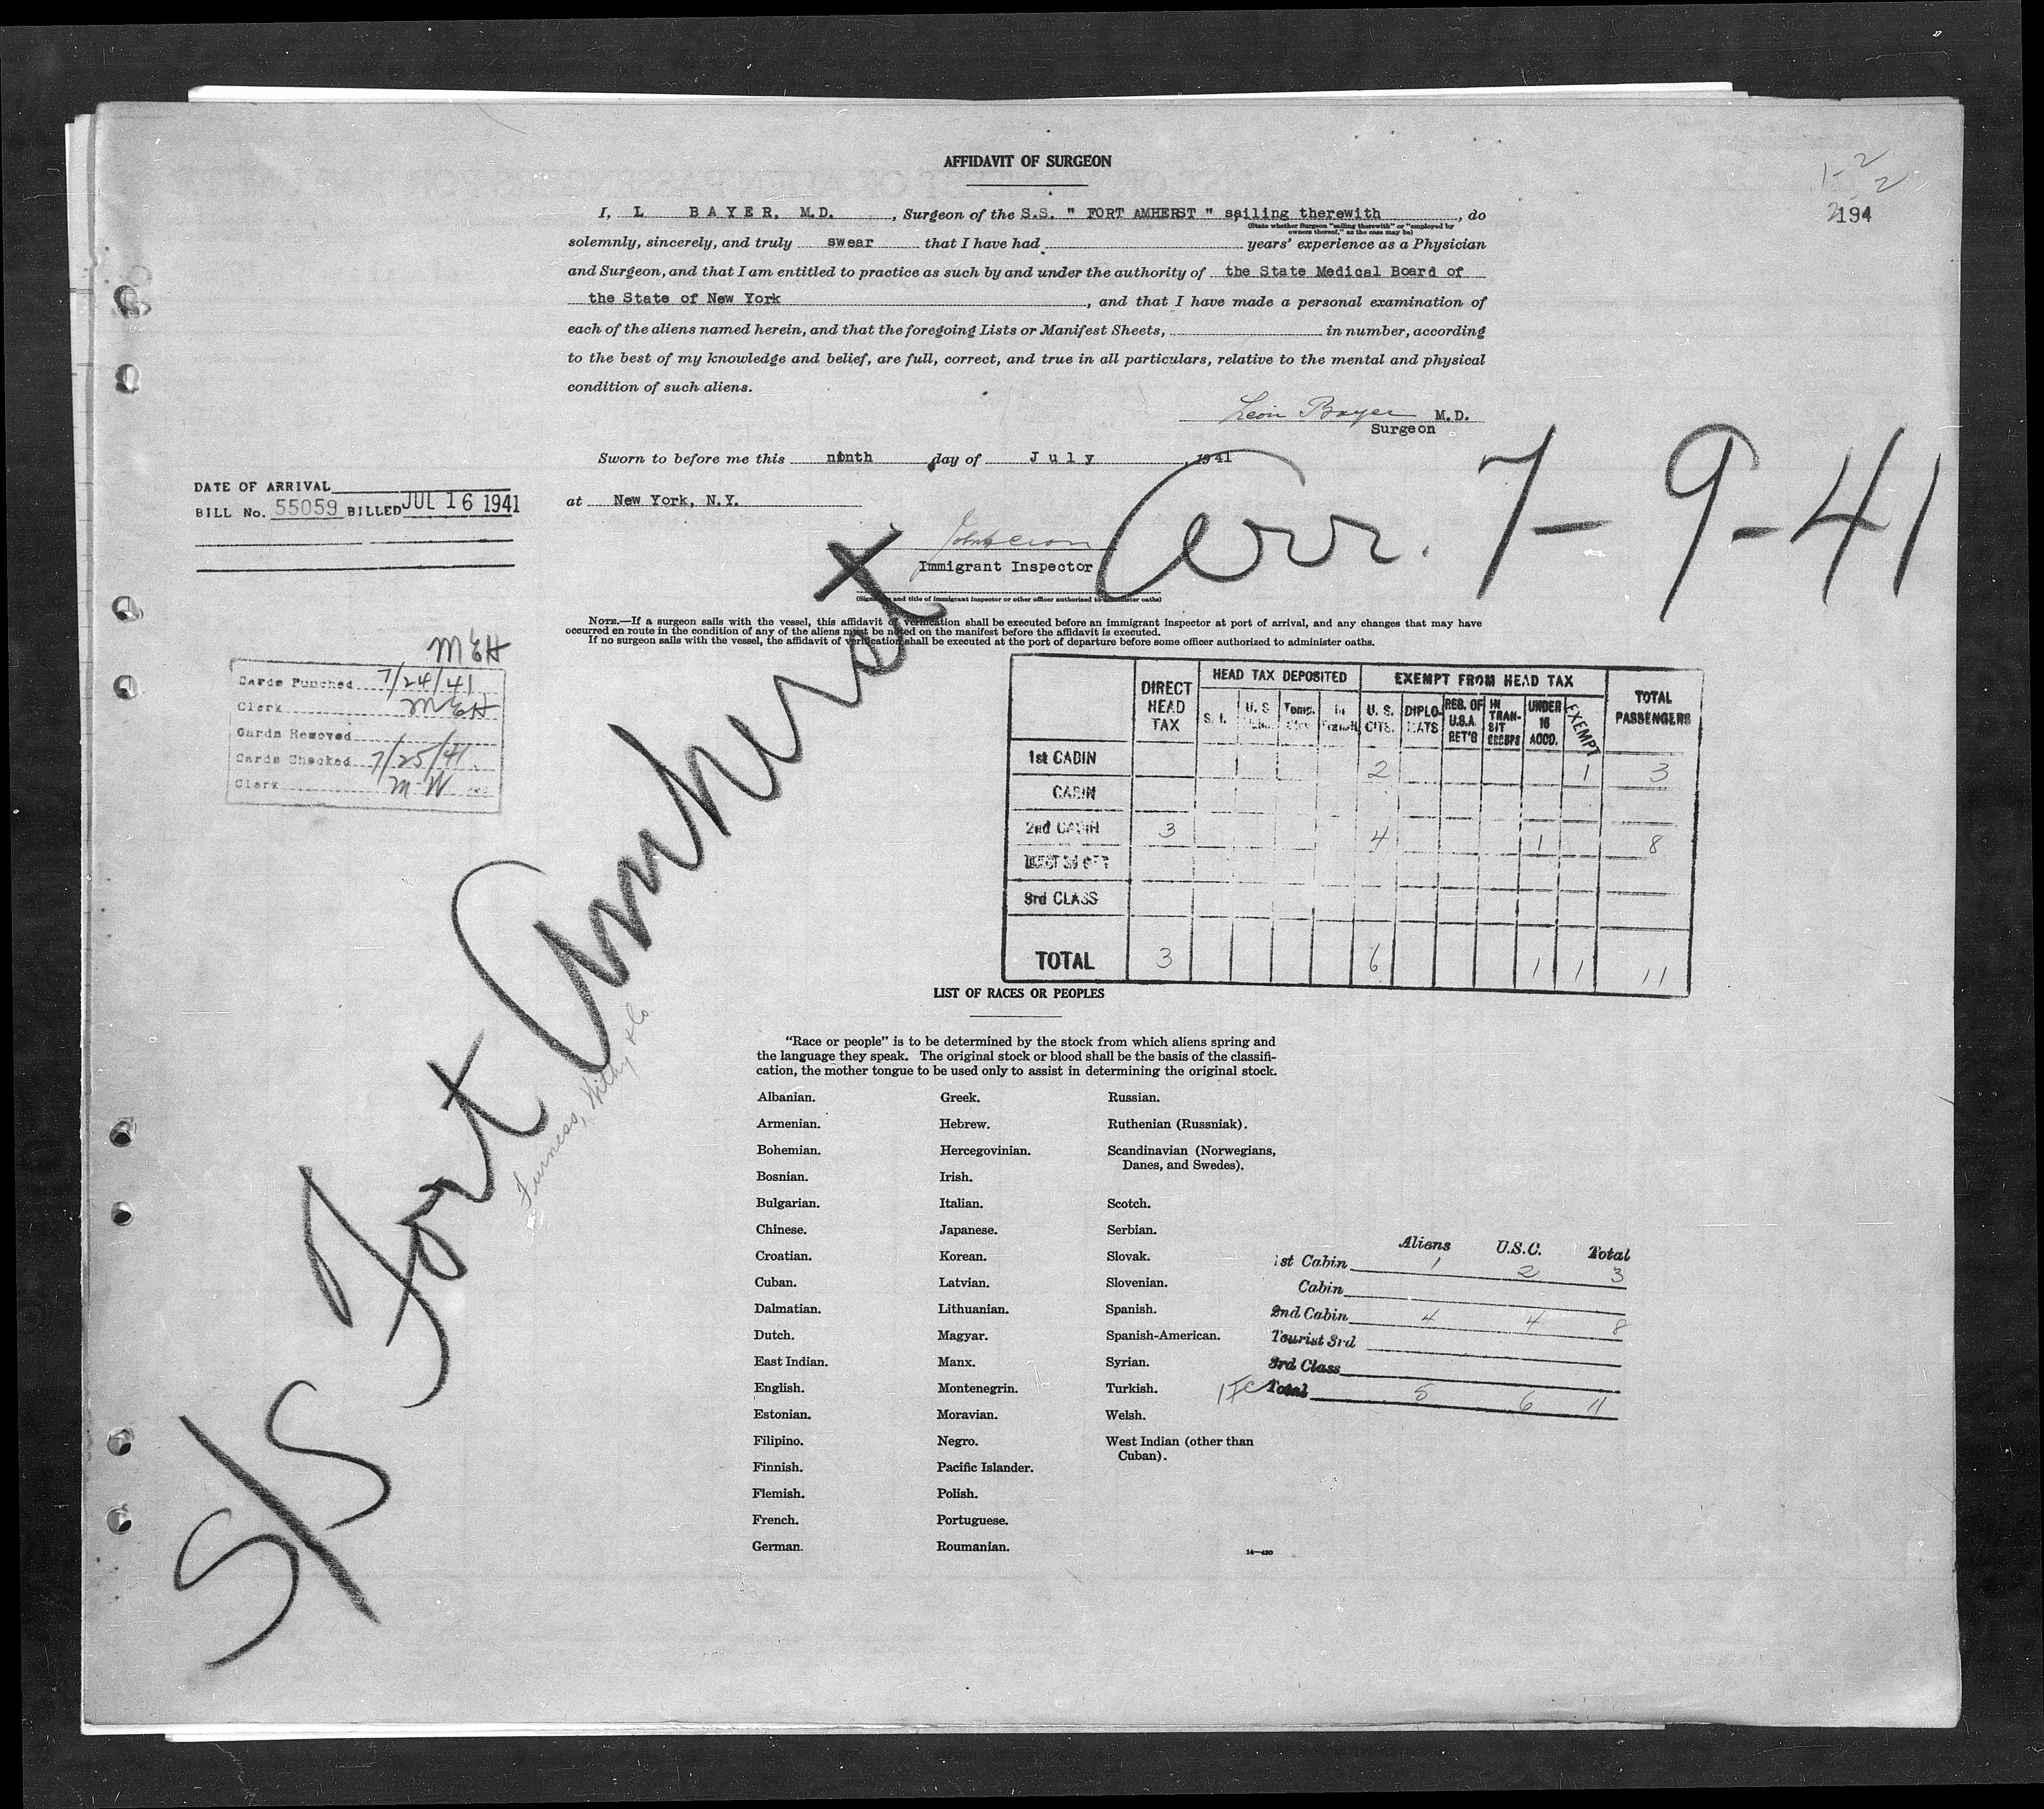 AFFIDAVIT OF SURGEON
1-2
2
2194
I, L BAYER, M.D. , Surgeon of the S.S. " FORT AMHERST " sailing therewith , do
(State whether Surgeon "sailing therewith" or "employed by
owners thereof," as the case may be)
solemnly, sincerely, and truly swear that I have had years' experience as a Physician
and Surgeon, and that I am entitled to practice as such by and under the authority of the State Medical Board of
the State of New York , and that I have made a personal examination of
each of the aliens named herein, and that the foregoing Lists or Manifest Sheets, in number, according
to the best of my knowledge and belief, are full, correct, and true in all particulars, relative to the mental and physical
condition of such aliens.
Leon Bayer M.D.
Surgeon
Sworn to before me this ninth day of July , 1941
at New York, N.Y.
Arr. 7-9-41
DATE OF ARRIVAL
BILL No. 55059 BILLED JUL 16 1941
Immigrant Inspector
(Signature and title of immigrant inspector or other officer authorized to administer oaths)
NOTE.—If a surgeon sails with the vessel, this affidavit of verification shall be executed before an immigrant inspector at port of arrival, and any changes that may have
occurred en route in the condition of any of the aliens must be noted on the manifest before the affidavit is executed.
If no surgeon sails with the vessel, the affidavit of verification shall be executed at the port of departure before some officer authorized to administer oaths.
MEH
Cards Punched 7/24/41
Clerk MEH
Cards Removed
Cards Checked 7/25/41
Clerk M-W
S/S Fort Amherst
Furness, Withy & Co.
DIRECT HEAD TAX HEAD TAX DEPOSITED EXEMPT FROM HEAD TAX TOTAL PASSENGERS
S. I. U. S. Temp. In Transit U. S. CITS. DIPLO-MATS RES. OF U.S.A. RET'G IN TRAN-SIT GROUPS UNDER 16 ACCD. EXEMPT
1st CABIN 2 1 3
CABIN
2nd CABIN 3 4 1 8
3rd CLASS
TOTAL 3 6 1 1 11
LIST OF RACES OR PEOPLES
"Race or people" is to be determined by the stock from which aliens spring and
the language they speak. The original stock or blood shall be the basis of the classifi-
cation, the mother tongue to be used only to assist in determining the original stock.
Albanian.
Armenian.
Bohemian.
Bosnian.
Bulgarian.
Chinese.
Croatian.
Cuban.
Dalmatian.
Dutch.
East Indian.
English.
Estonian.
Filipino.
Finnish.
Flemish.
French.
German.
Greek.
Hebrew.
Hercegovinian.
Irish.
Italian.
Japanese.
Korean.
Latvian.
Lithuanian.
Magyar.
Manx.
Montenegrin.
Moravian.
Negro.
Pacific Islander.
Polish.
Portuguese.
Roumanian.
Russian.
Ruthenian (Russniak).
Scandinavian (Norwegians,
Danes, and Swedes).
Scotch.
Serbian.
Slovak.
Slovenian.
Spanish.
Spanish-American.
Syrian.
Turkish.
Welsh.
West Indian (other than
Cuban).
Aliens U.S.C. Total
1st Cabin 1 2 3
Cabin
2nd Cabin 4 4 8
Tourist 3rd
3rd Class
Total 5 6 11
14—420